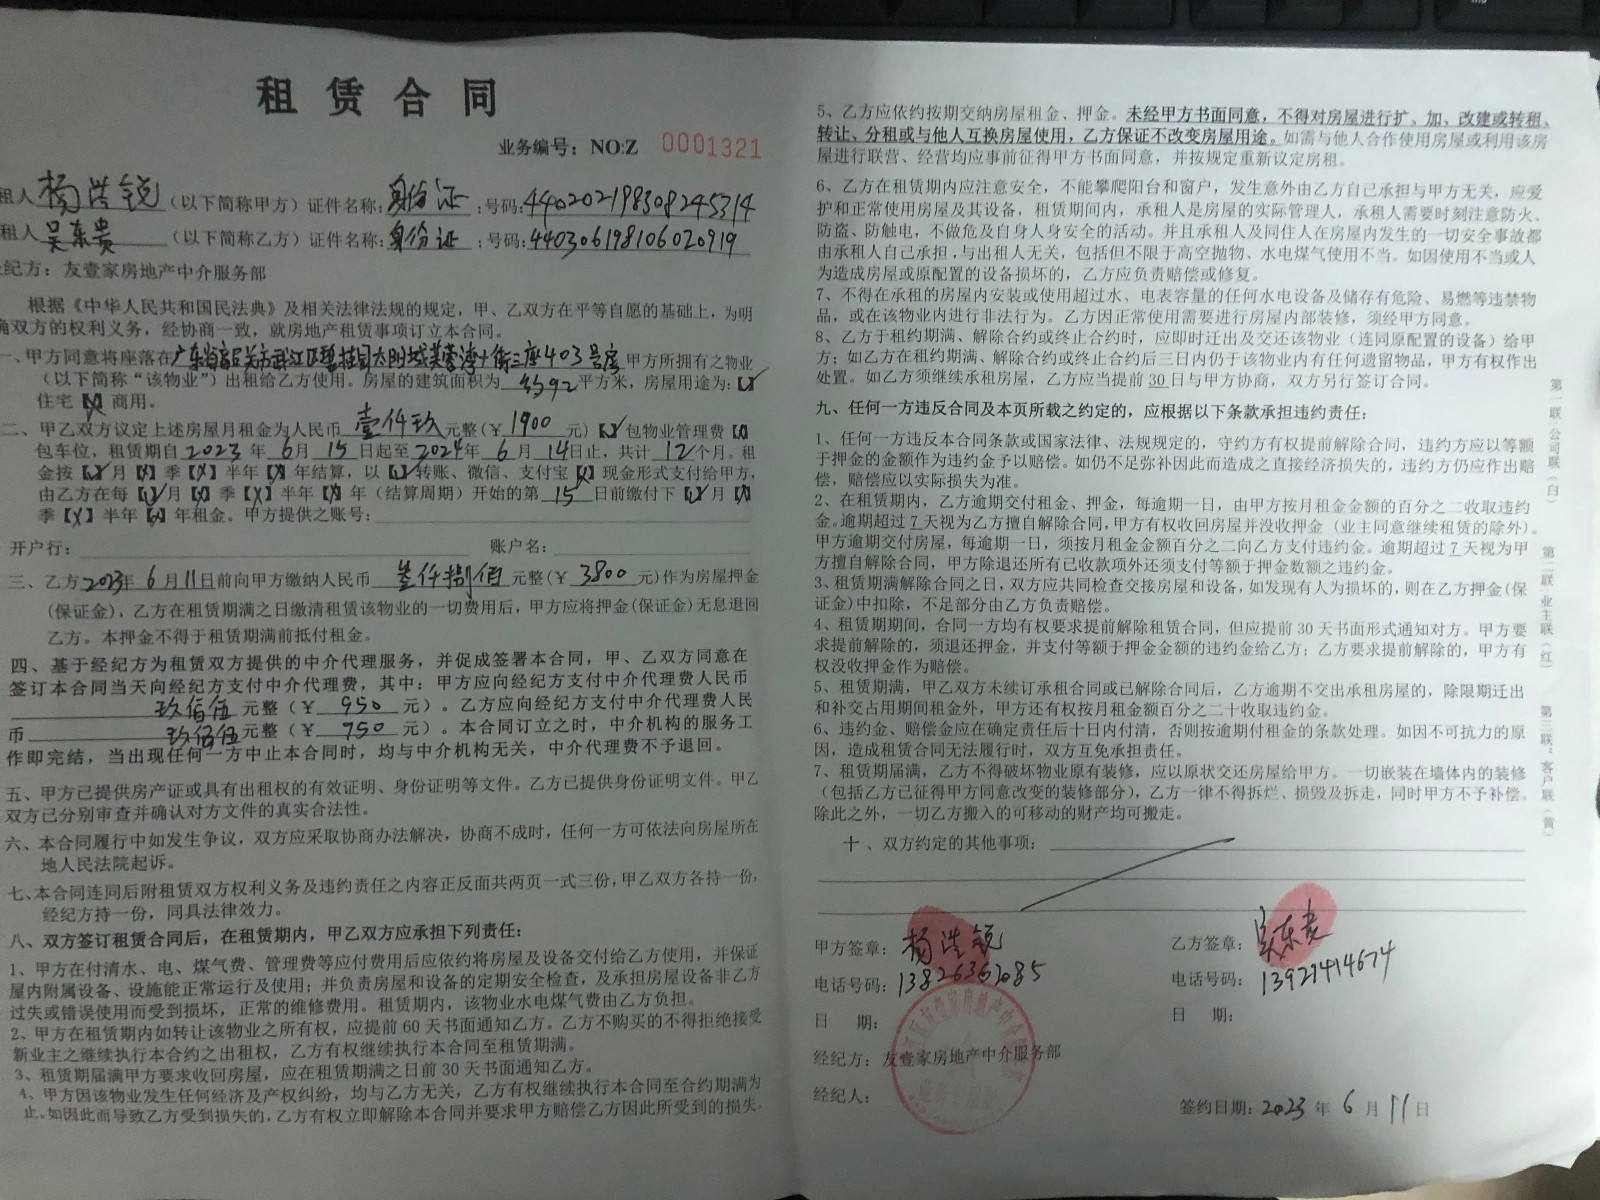 租赁合同
业务编号：NO:Z 0001321
租人 杨浩锐（以下简称甲方）证件名称：身份证；号码：440202198308245314
租人 吴东贵（以下简称乙方）证件名称：身份证；号码：440306198106020919
经纪方：友壹家房地产中介服务部
根据《中华人民共和国民法典》及相关法律法规的规定，甲、乙双方在平等自愿的基础上，为明
确双方的权利义务，经协商一致，就房地产租赁事项订立本合同。
一、甲方同意将座落在广东省韶关市武江区碧桂园太阳城芙蓉湾十街三座403号房 甲方所拥有之物业
（以下简称“该物业”）出租给乙方使用。房屋的建筑面积为 约92 平方米，房屋用途为：【✓】
住宅【X】商用。
二、甲乙双方议定上述房屋月租金为人民币 壹仟玖 元整（￥1900 元）【✓】包物业管理费【X】
包车位，租赁期自 2023 年 6 月 15 日起至 2024 年 6 月 14 日止，共计 12 个月。租
金按【✓】月【X】季【X】半年【X】年结算，以【✓】转账、微信、支付宝【X】现金形式支付给甲方，
由乙方在每【✓】月【X】季【X】半年【X】年（结算周期）开始的第 15 日前缴付下【✓】月【X】
季【X】半年【X】年租金。甲方提供之账号：
开户行： 账户名：
三、乙方 2023年 6月11日前向甲方缴纳人民币 叁仟捌佰 元整（￥3800 元）作为房屋押金
（保证金），乙方在租赁期满之日缴清租赁该物业的一切费用后，甲方应将押金（保证金）无息退回
乙方。本押金不得于租赁期满前抵付租金。
四、基于经纪方为租赁双方提供的中介代理服务，并促成签署本合同，甲、乙双方同意在
签订本合同当天向经纪方支付中介代理费，其中：甲方应向经纪方支付中介代理费人民币
玖佰伍 元整（￥ 950 元）。乙方应向经纪方支付中介代理费人民
币 玖佰伍 元整（￥ 750 元）。本合同订立之时，中介机构的服务工
作即完结，当出现任何一方中止本合同时，均与中介机构无关，中介代理费不予退回。
五、甲方已提供房产证或具有出租权的有效证明、身份证明等文件。乙方已提供身份证明文件。甲乙
双方已分别审查并确认对方文件的真实合法性。
六、本合同履行中如发生争议，双方应采取协商办法解决，协商不成时，任何一方可依法向房屋所在
地人民法院起诉。
七、本合同连同后附租赁双方权利义务及违约责任之内容正反面共两页一式三份，甲乙双方各持一份，
经纪方持一份，同具法律效力。
八、双方签订租赁合同后，在租赁期内，甲乙双方应承担下列责任：
1、甲方在付清水、电、煤气费、管理费等应付费用后应依约将房屋及设备交付给乙方使用，并保证
屋内附属设备、设施能正常运行及使用；并负责房屋和设备的定期安全检查，及承担房屋设备非乙方
过失或错误使用而受到损坏，正常的维修费用。租赁期内，该物业水电煤气费由乙方负担。
2、甲方在租赁期内如转让该物业之所有权，应提前60天书面通知乙方。乙方不购买的不得拒绝接受
新业主之继续执行本合约之出租权，乙方有权继续执行本合同至租赁期满。
3、租赁期届满甲方要求收回房屋，应在租赁期满之日前30天书面通知乙方。
4、甲方因该物业发生任何经济及产权纠纷，均与乙方无关，乙方有权继续执行本合同至合约期满为
止。如因此而导致乙方受到损失的，乙方有权立即解除本合同并要求甲方赔偿乙方因此所受到的损失。
5、乙方应依约按期交纳房屋租金、押金。未经甲方书面同意，不得对房屋进行扩、加、改建或转租、
转让、分租或与他人互换房屋使用，乙方保证不改变房屋用途。如需与他人合作使用房屋或利用该房
屋进行联营、经营均应事前征得甲方书面同意，并按规定重新议定房租。
6、乙方在租赁期内应注意安全，不能攀爬阳台和窗户，发生意外由乙方自己承担与甲方无关，应爱
护和正常使用房屋及其设备，租赁期间内，承租人是房屋的实际管理人，承租人需要时刻注意防火、
防盗、防触电，不做危及自身人身安全的活动。并且承租人及同住人在房屋内发生的一切安全事故都
由承租人自己承担，与出租人无关，包括但不限于高空抛物、水电煤气使用不当。如因使用不当或人
为造成房屋或原配置的设备损坏的，乙方应负责赔偿或修复。
7、不得在承租的房屋内安装或使用超过水、电表容量的任何水电设备及储存有危险、易燃等违禁物
品，或在该物业内进行非法行为。乙方因正常使用需要进行房屋内部装修，须经甲方同意。
8、乙方于租约期满、解除合约或终止合约时，应即时迁出及交还该物业（连同原配置的设备）给甲
方；如乙方在租约期满、解除合约或终止合约后三日内仍于该物业内有任何遗留物品，甲方有权作出
处置。如乙方须继续承租房屋，乙方应当提前30日与甲方协商，双方另行签订合同。
九、任何一方违反合同及本页所载之约定的，应根据以下条款承担违约责任：
1、任何一方违反本合同条款或国家法律、法规规定的，守约方有权提前解除合同，违约方应以等额
于押金的金额作为违约金予以赔偿。如仍不足弥补因此而造成之直接经济损失的，违约方仍应作出赔
偿，赔偿应以实际损失为准。
2、在租赁期内，乙方逾期交付租金、押金，每逾期一日，由甲方按月租金金额的百分之二收取违约
金。逾期超过7天视为乙方擅自解除合同，甲方有权收回房屋并没收押金（业主同意继续租赁的除外）。
甲方逾期交付房屋，每逾期一日，须按月租金金额百分之二向乙方支付违约金。逾期超过7天视为甲
方擅自解除合同，甲方除退还所有已收款项外还须支付等额于押金数额之违约金。
3、租赁期满解除合同之日，双方应共同检查交接房屋和设备，如发现有人为损坏的，则在乙方押金（保
证金）中扣除，不足部分由乙方负责赔偿。
4、租赁期期间，合同一方均有权要求提前解除租赁合同，但应提前30天书面形式通知对方。甲方要
求提前解除的，须退还押金，并支付等额于押金金额的违约金给乙方；乙方要求提前解除的，甲方有
权没收押金作为赔偿。
5、租赁期满，甲乙双方未续订承租合同或已解除合同后，乙方逾期不交出承租房屋的，除限期迁出
和补交占用期间租金外，甲方还有权按月租金额百分之二十收取违约金。
6、违约金、赔偿金应在确定责任后十日内付清，否则按逾期付租金的条款处理。如因不可抗力的原
因，造成租赁合同无法履行时，双方互免承担责任。
7、租赁期届满，乙方不得破坏物业原有装修，应以原状交还房屋给甲方。一切嵌装在墙体内的装修
（包括乙方已征得甲方同意改变的装修部分），乙方一律不得拆烂、损毁及拆走，同时甲方不予补偿。
除此之外，一切乙方搬入的可移动的财产均可搬走。
十、双方约定的其他事项：
甲方签章：杨浩锐 乙方签章：吴东贵
电话号码：13826363085 电话号码：13927414674
日 期： 日 期：
经纪方：友壹家房地产中介服务部
经纪人：
签约日期：2023 年 6 月 11 日
第一联：公司联（白） 第二联：业主联（红） 第三联：客户联（黄）